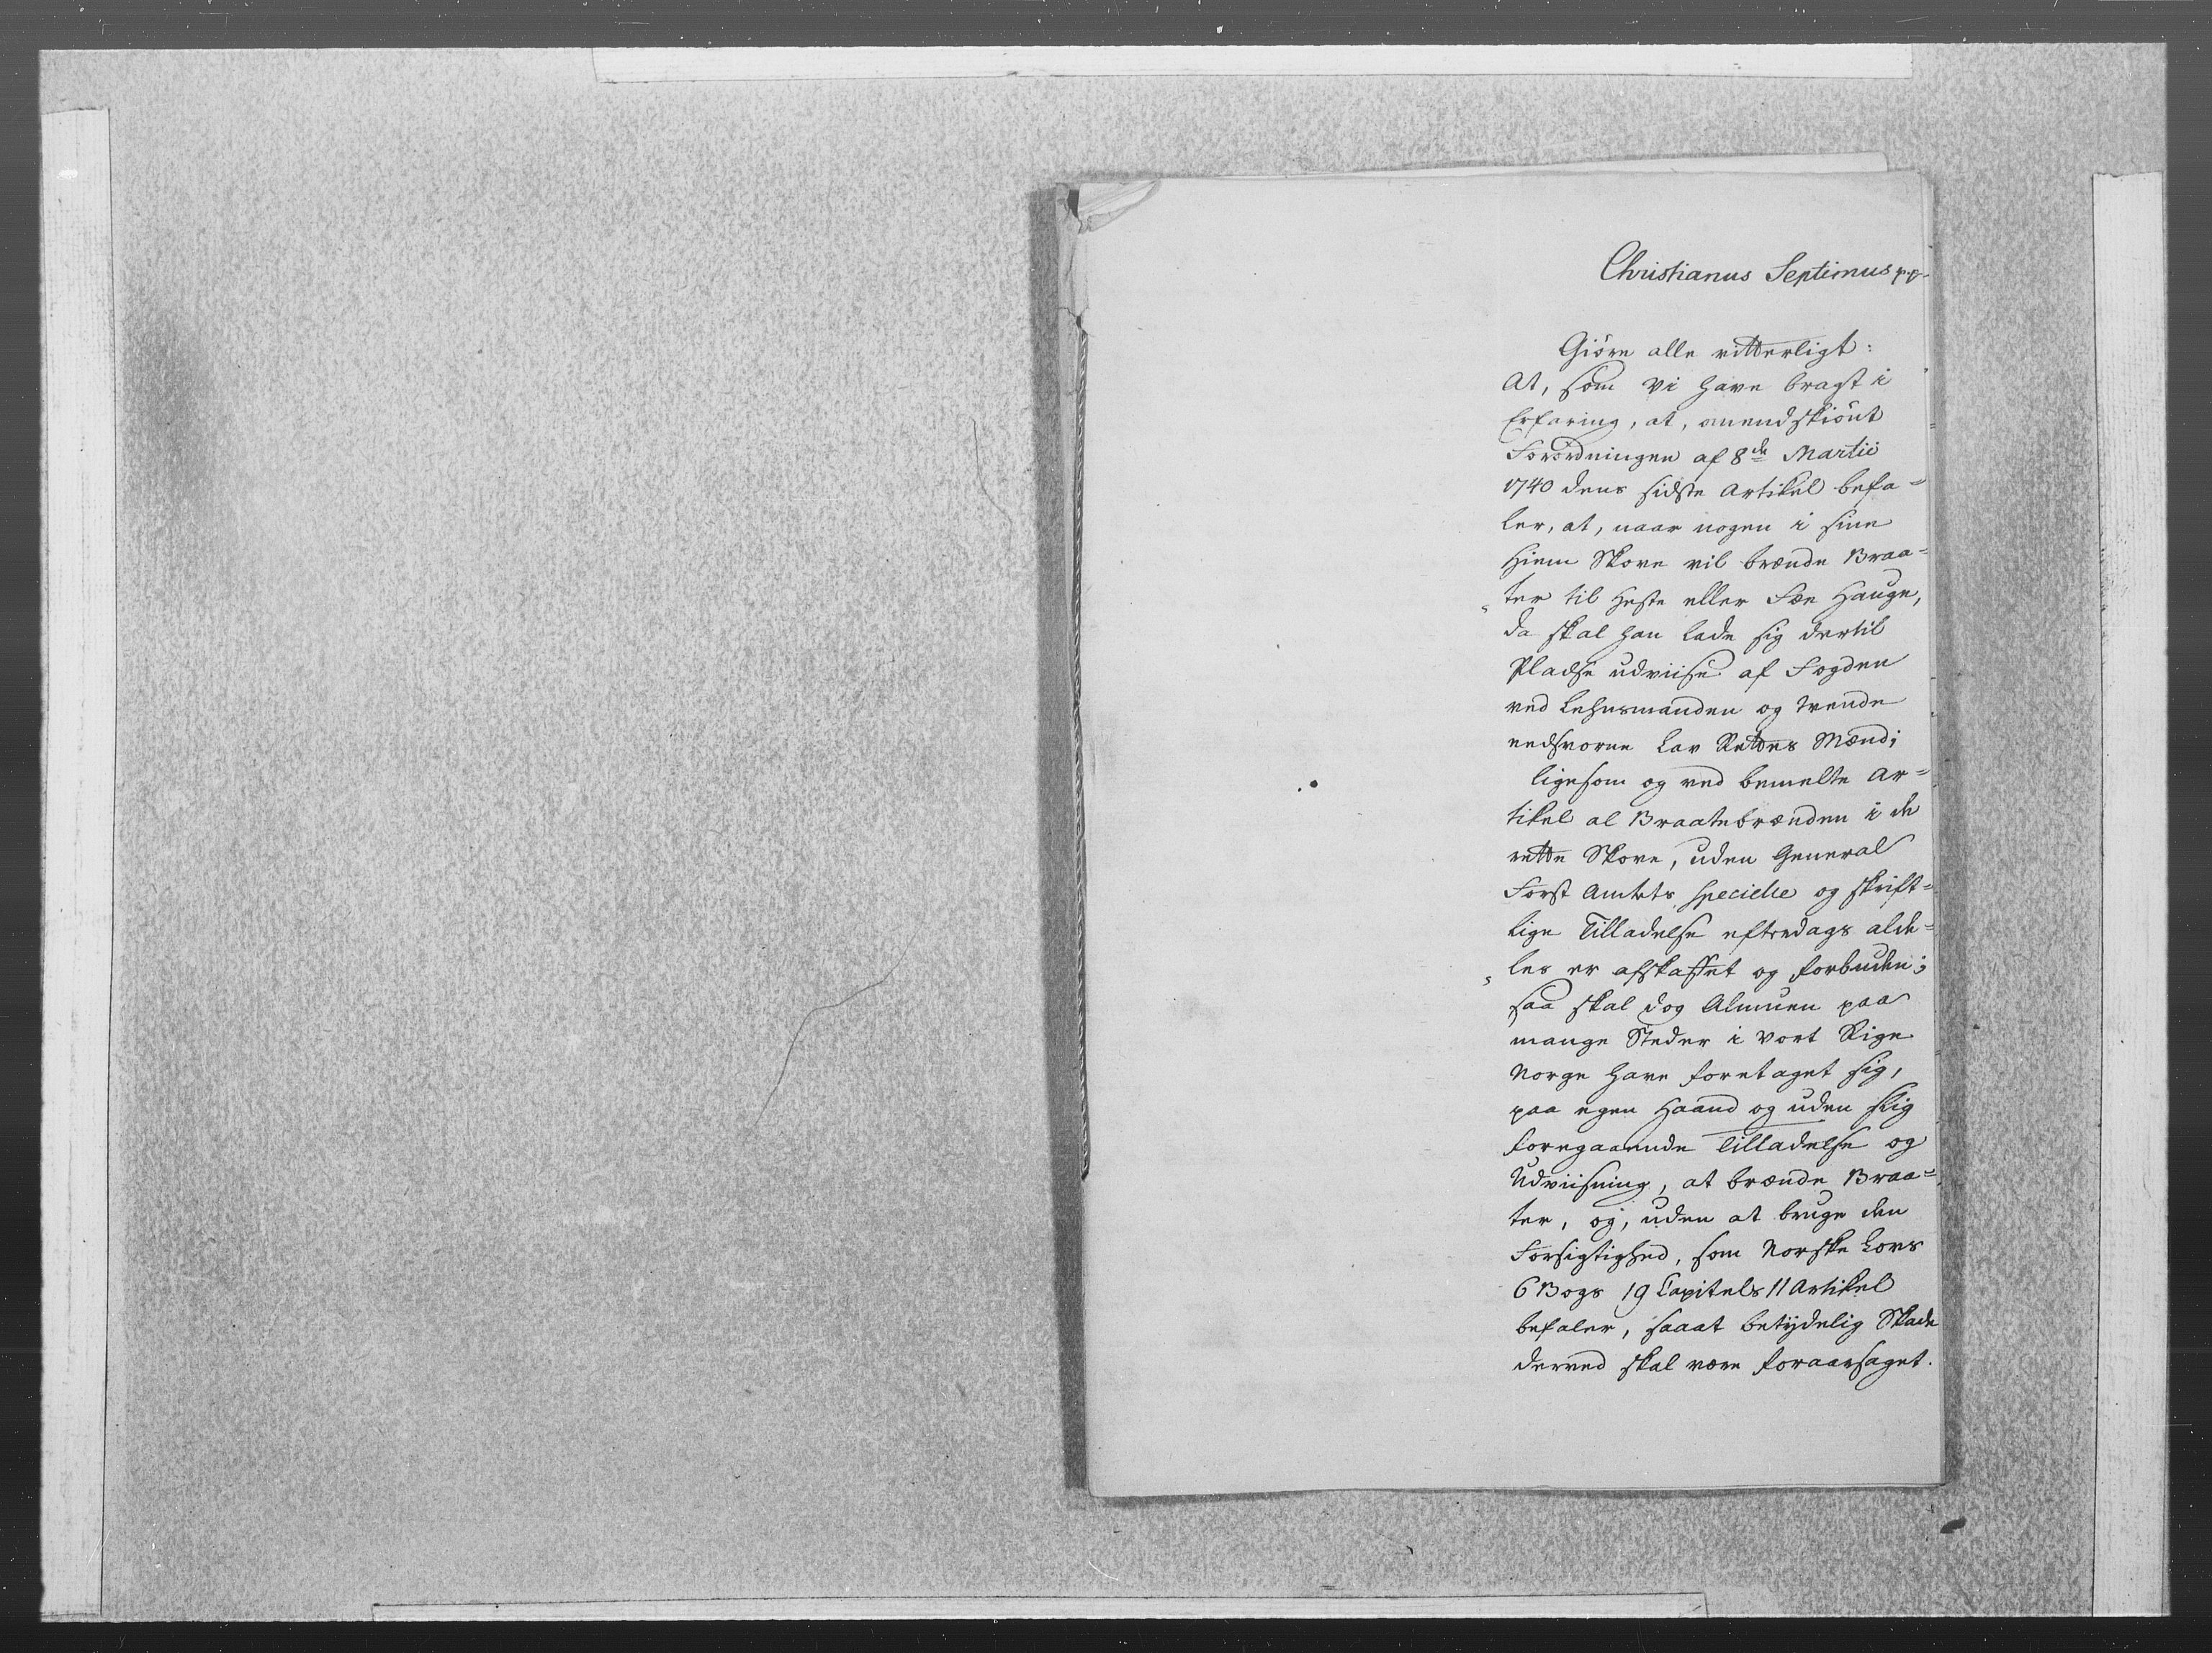 Christianus Septimus p.p.
Giöre alle vitterligt:
At, som Vi have bragt i
Erfaring, at, omendskiönt
Forordningen af 8de Martii
1740 dens sidste Artikel befa=
ler, at, naar nogen i sine
Hiem Skove vil brænde Braa=
ter til Heste eller Fæe Hauge,
da skal han lade sig dertil
Pladse udviise af Fogden
ved Lehnsmanden og trende
eedsvorne Lav Rettes Mænd;
ligesom og ved bemelte Ar=
tikel al Braatebrænden i de
rette Skove, uden General
Forst Amtets specielle og skrift=
lige Tilladelse efterdags alde=
les er afskaffet og forbuden;
saa skal dog Almuen paa
mange Steder i Vort Rige
Norge have foretaget sig,
paa egen Haand og uden slig
foregaaende Tilladelse og
Udviisning, at brænde Braa=
ter, og, uden at bruge den
Forsigtighed, som Norske Lovs
6 Bogs 19 Capitels 11 Artikel
befaler, saaat betydelig Skade
derved skal være foraarsaget.